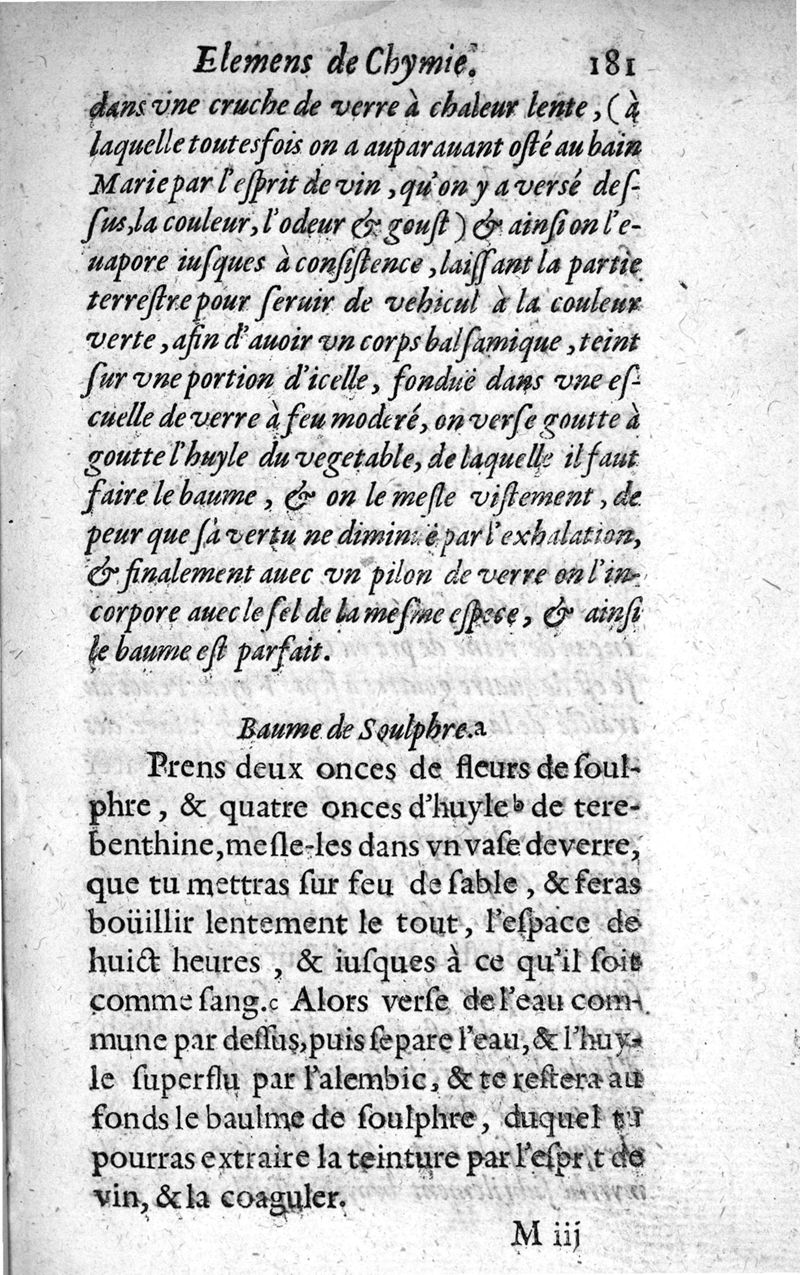 Elemens de Chymie. 181
dans vne cruche de verre à chaleur lente, (à
laquelle toutesfois on a auparauant osté au bain
Marie par l'esprit de vin, qu'on y a versé des-
sus, la couleur, l'odeur & goust) & ainsi on l'e-
uapore iusques à consistence, laissant la partie
terrestre pour seruir de vehicul à la couleur
verte, afin d'auoir vn corps balsamique, teint
sur vne portion d'icelle, fonduë dans vne es-
cuelle de verre à feu moderé, on verse goutte à
goutte l'huyle du vegetable, de laquelle il faut
faire le baume, & on le mesle vistement, de
peur que sa vertu ne diminuë par l'exhalation,
& finalement auec vn pilon de verre on l'in-
corpore auec le sel de la mesme espece, & ainsi
le baume est parfait.
Baume de Soulphre.a
Prens deux onces de fleurs de soul-
phre, & quatre onces d'huyle b de tere-
benthine, mesle-les dans vn vase de verre,
que tu mettras sur feu de sable, & feras
boüillir lentement le tout, l'espace de
huict heures, & iusques à ce qu'il soit
comme sang.c Alors verse de l'eau com-
mune par dessus, puis separe l'eau, & l'huy-
le superflu par l'alembic, & te restera au
fonds le baulme de soulphre, duquel tu
pourras extraire la teinture par l'esprit de
vin, & la coaguler.
M iij